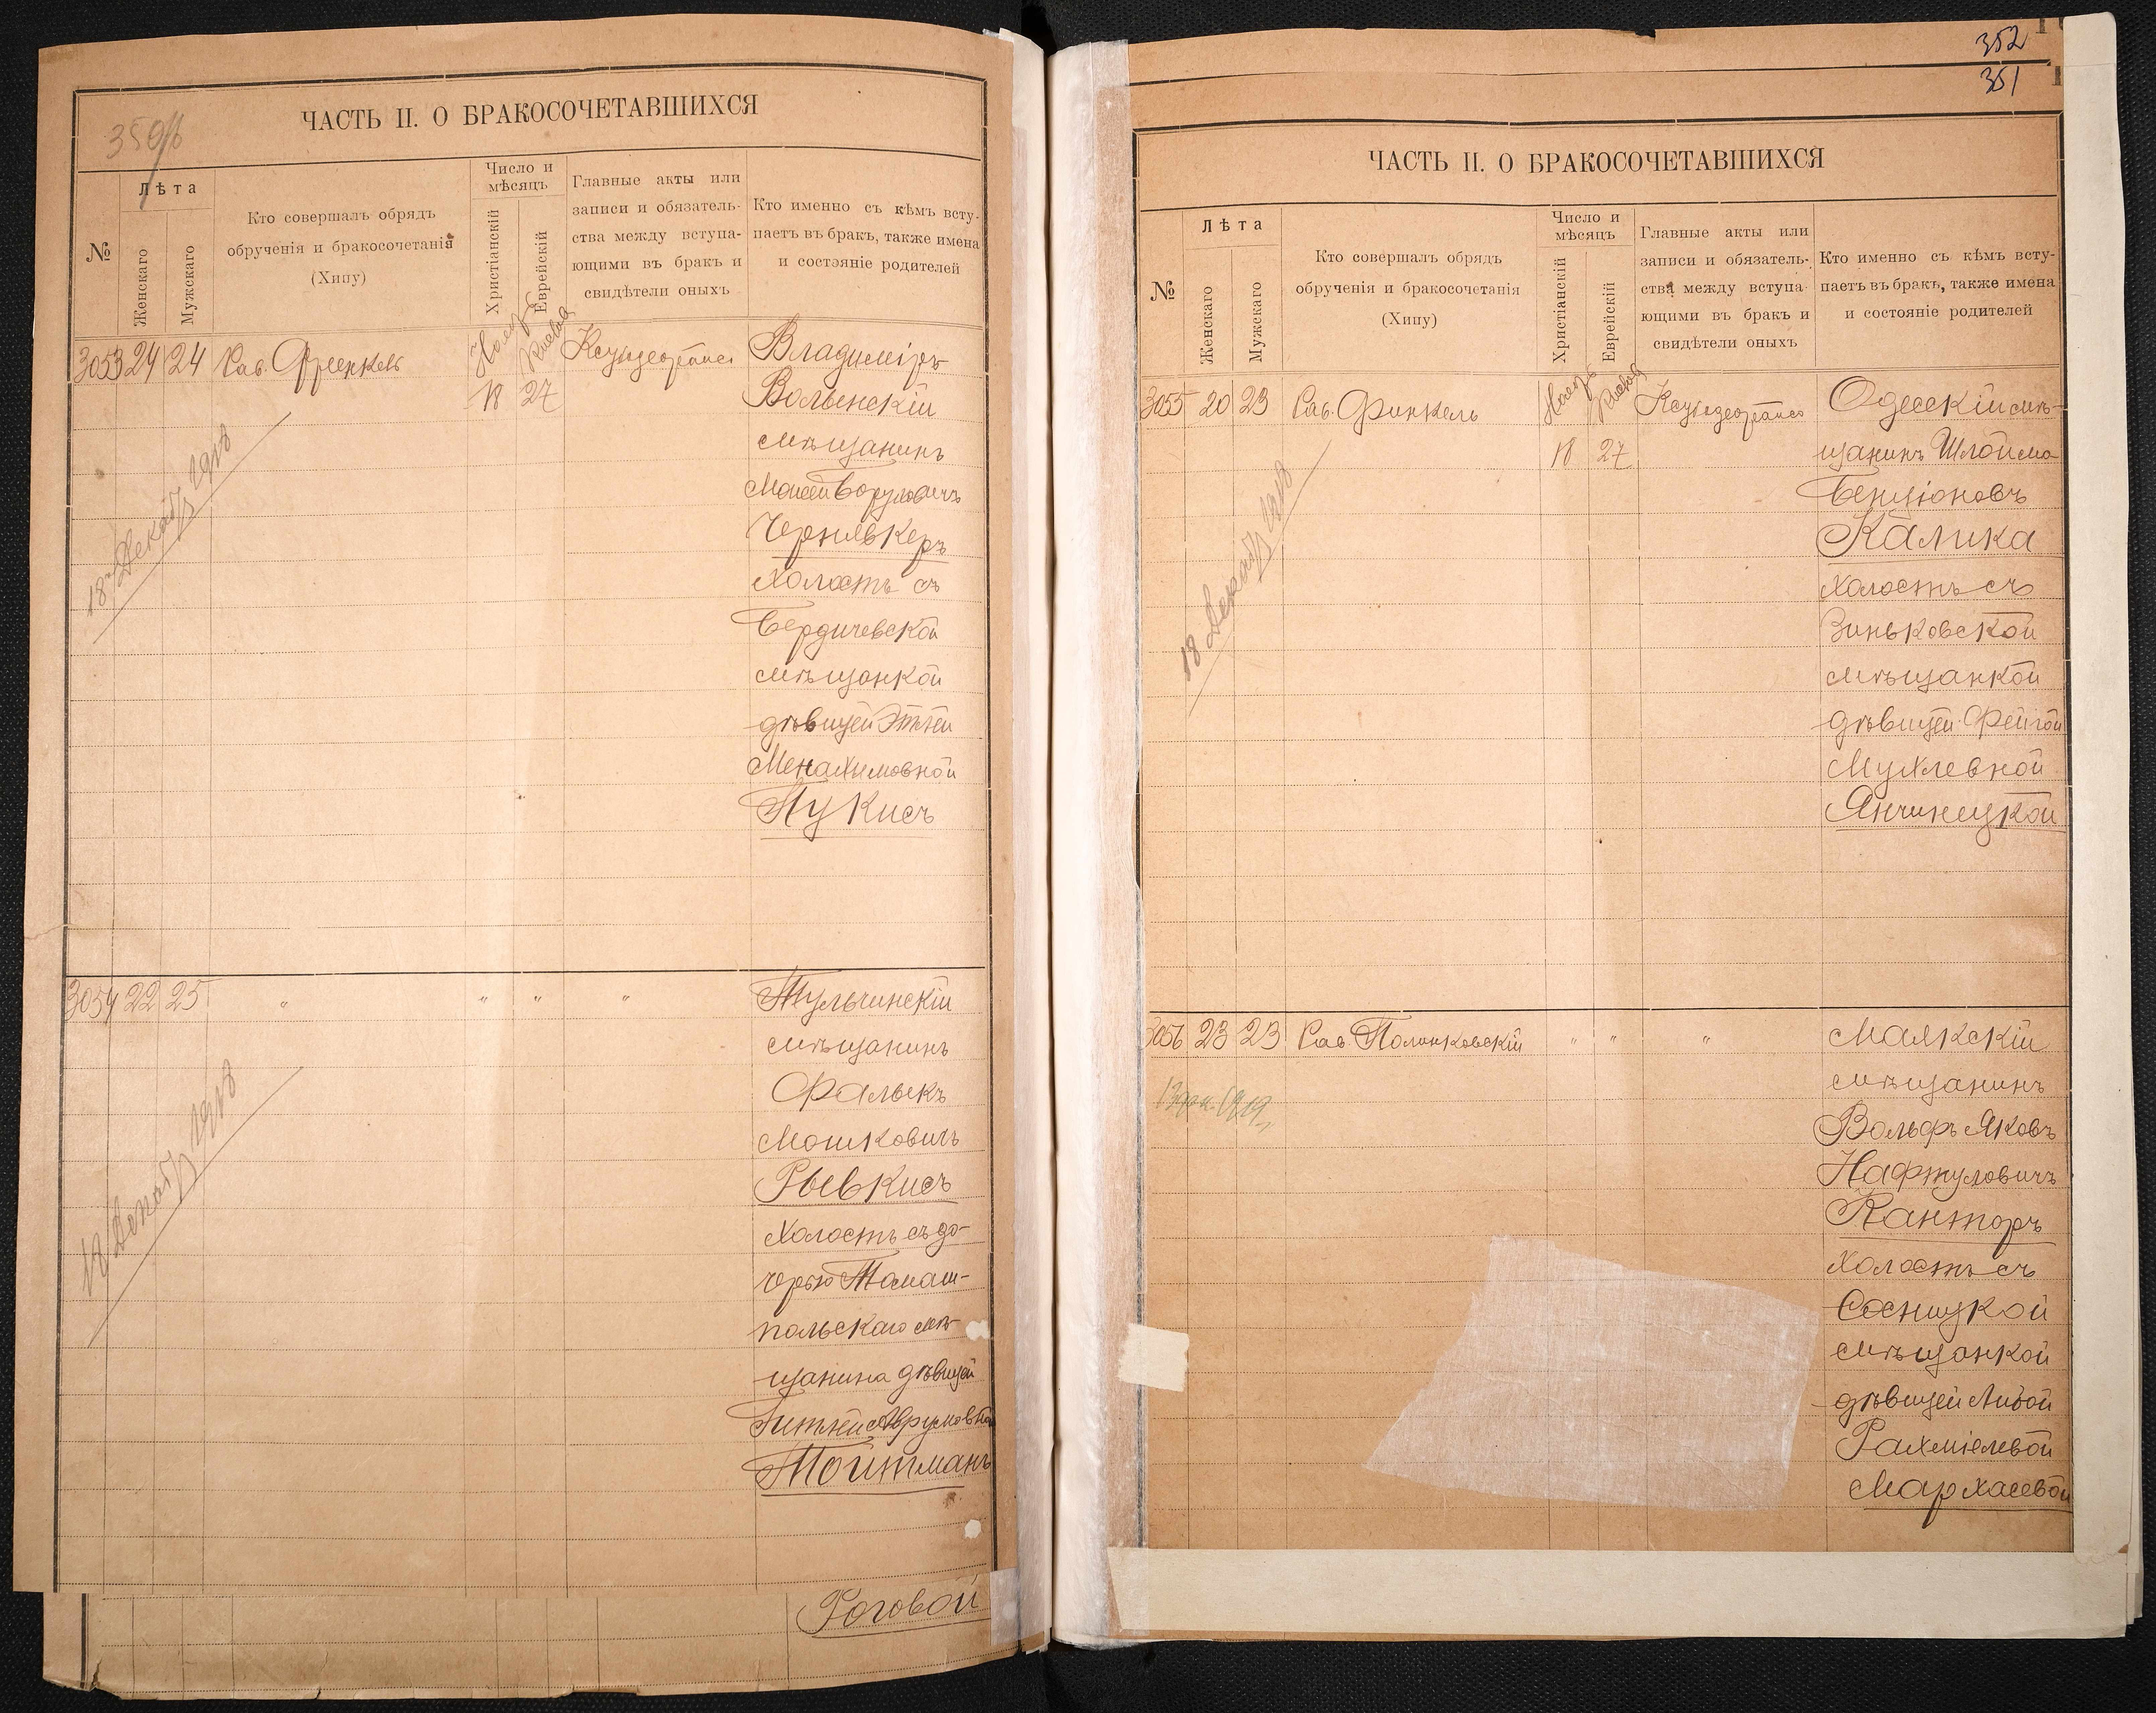 ЧАСТЬ II. О БРАКОСОЧЕТАВШИХСЯ
№
Лѣта
Женскаго
Мужскаго
Кто совершалъ обрядъ
обрученія и бракосочетанія
(Хипу)
Число и
мѣсяцъ
Христіанскій
Еврейскій
Главные акты или
записи и обязатель-
ства между вступа-
ющими въ бракъ и
свидѣтели оныхъ
Кто именно съ кѣмъ всту-
паетъ въ бракъ, также имена
и состояніе родителей
3053 24 24 Рав. Френкель
18 27
Владиміръ
Волынскій
мѣщанинъ
Моисей Боруховичъ
Чернявкеръ
холостъ съ
Бердичевской
мѣщанкой
дѣвицей Этлей
Менахимовной
Пукисъ
18 Декабр 1918
3054 22 25 " " " "
Тульчинскій
мѣщанинъ
Фалькъ
Мошковичъ
Рывкисъ
холостъ съ до-
черью Томаш-
польскаго мѣ-
щанина дѣвицей
Гитлей Аврумовной
Тойтманъ
18 Декабр 1918
Роговой
352
351
ЧАСТЬ II. О БРАКОСОЧЕТАВШИХСЯ
№
Лѣта
Женскаго
Мужскаго
Кто совершалъ обрядъ
обрученія и бракосочетанія
(Хипу)
Число и
мѣсяцъ
Христіанскій
Еврейскій
Главные акты или
записи и обязатель-
ства между вступа-
ющими въ бракъ и
свидѣтели оныхъ
Кто именно съ кѣмъ всту-
паетъ въ бракъ, также имена
и состояніе родителей
3055 20 23 Рав. Финкель
18 27
Одесскій мѣ-
щанинъ Шлойма
Бенціоновъ
Калика
холостъ съ
Зиньковской
мѣщанкой
дѣвицей Фейгой
Мухлевной
Янчинецкой
18 Декабр 1918
3056 23 23 Рав. Полинковскій " " "
Маякскій
мѣщанинъ
Вольфъ Яковъ
Нафтуловичъ
Канторъ
холостъ съ
Сосницкой
мѣщанкой
дѣвицей Либой
Рахміелевой
Мархасевой